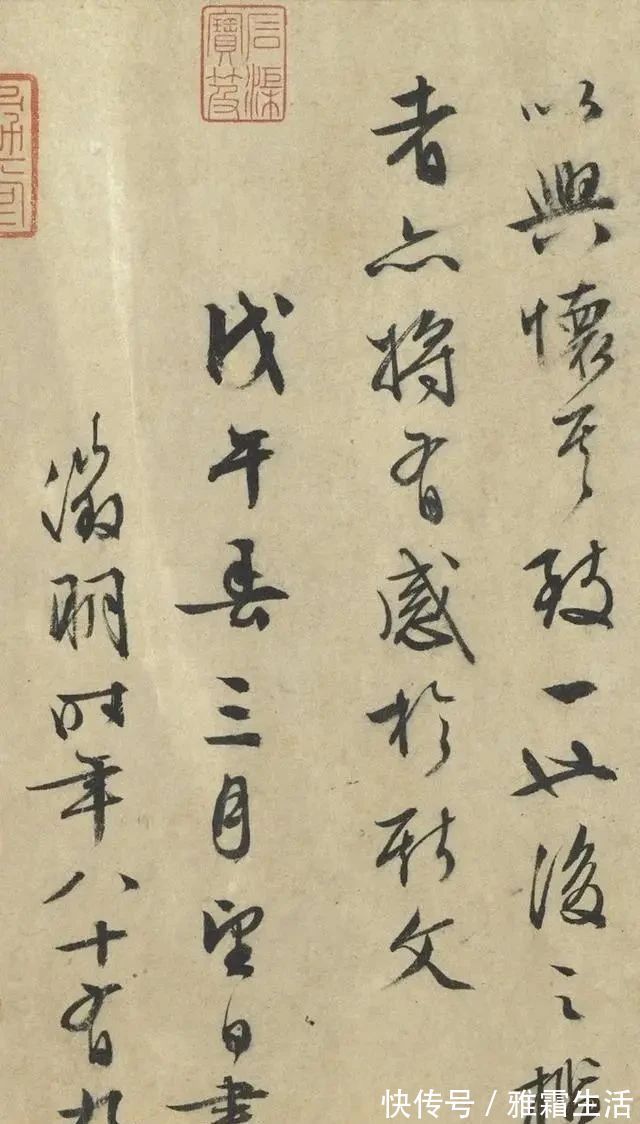 以興懷其致一也後之攬
者亦將有感於斯文
石渠寶笈
戊午春三月望日書
徵明時年八十有九
快传号 / 雅霜生活